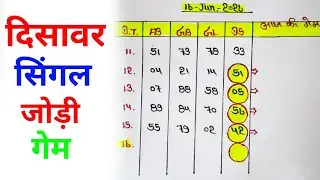 दिसावर
सिंगल
जोड़ी
गेम
16-Jun-2026
D.T. FB GB GL DS आज की गेम
11. 51 73 78 33
12. 04 21 14 51
13. 07 88 58 05
14. 89 84 70 56
15. 55 79 02 42
16.